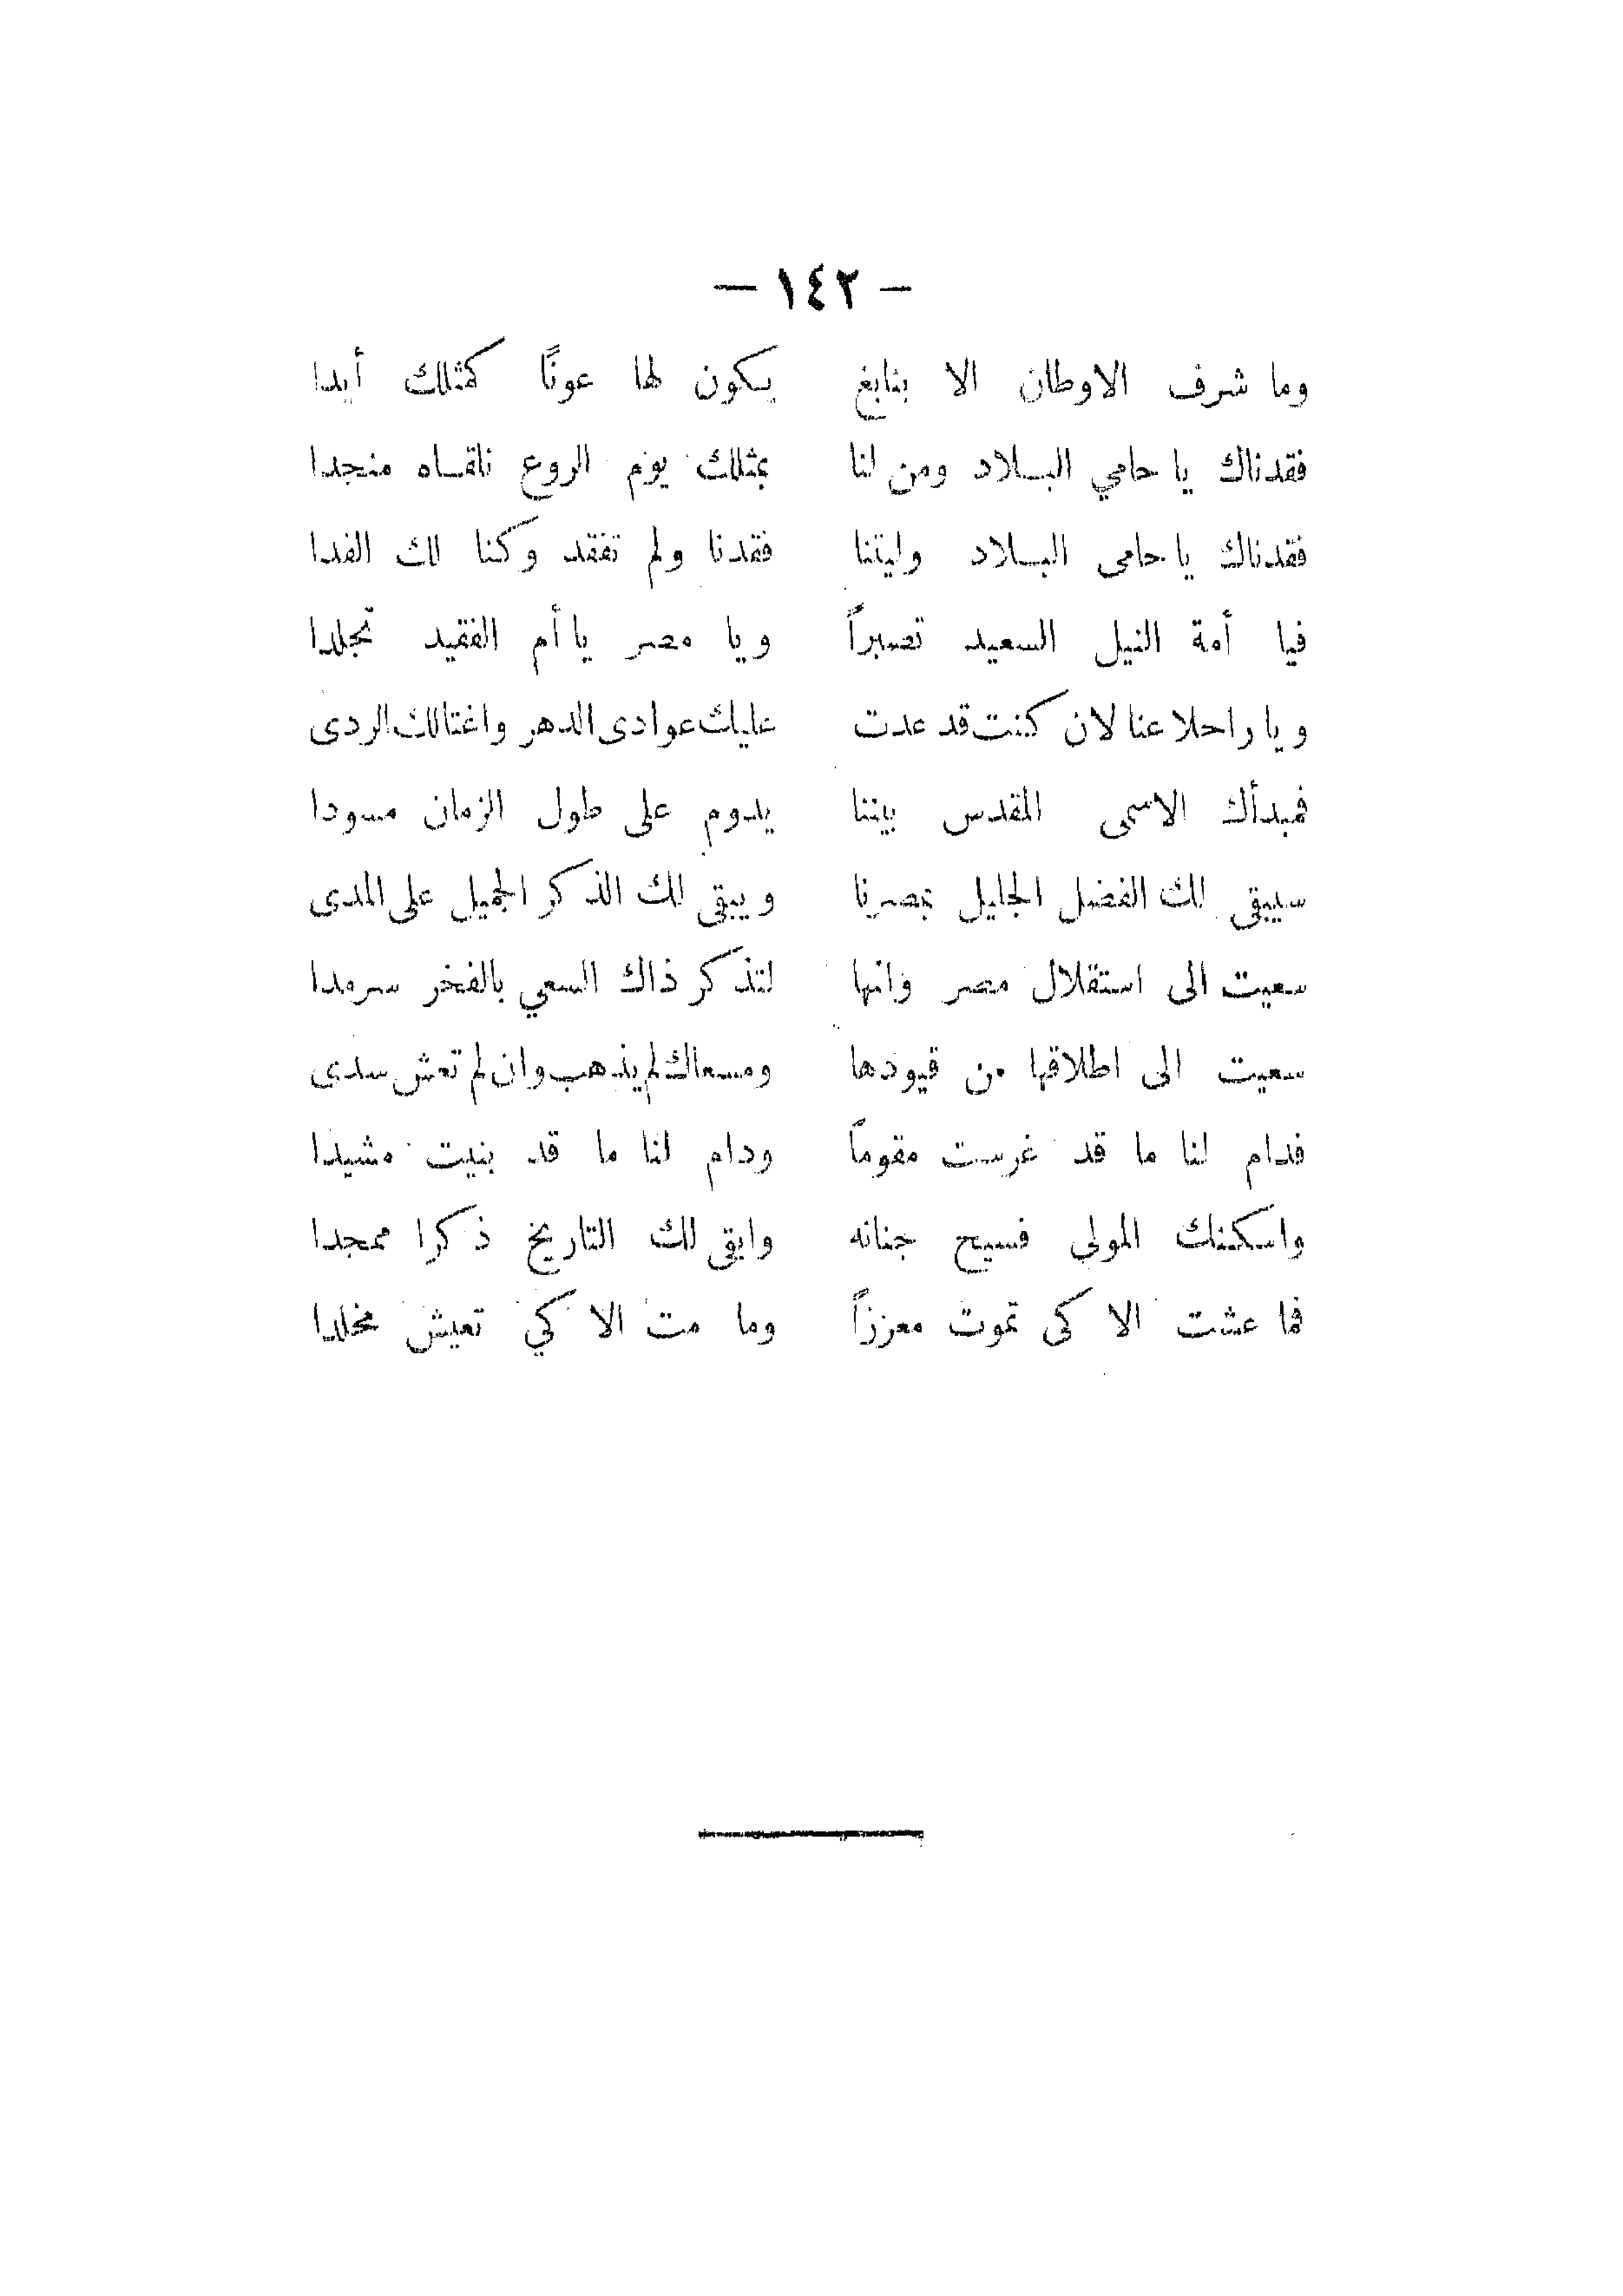 — ١٤٢ —
وما شرف الاوطان الا بنابغ يكون لها عونًا كمثلك أيدا
فقدناك يا حامي البلاد ومن لنا بمثلك يوم الروع نلقاه منجدا
فقدناك يا حامى البلاد وليتنا فقدنا ولم تفقد وكنا لك الفدا
فيا أمة النيل السعيد تصبراً ويا مصر يا أم الفقيد تجلدا
ويا راحلا عنا لان كنت قد عدت عليك عوادى الدهر واغتالك الردى
فمبدأك الاسمى المقدس بيننا يدوم على طول الزمان مسودا
سيبقى لك الفضل الجليل بمصرنا ويبقى لك الذكر الجميل على المدى
سعيت الى استقلال مصر وانها لتذكر ذاك السعي بالفخر سرمدا
سعيت الى اطلاقها من قيودها ومسعاك لم يذهب وان لم تعش سدى
فدام لنا ما قد غرست مقوماً ودام لنا ما قد بنيت مشيدا
واسكنك المولى فسيح جنانه وابقى لك التاريخ ذكرا ممجدا
فما عشت الا كى تموت معززاً وما مت الا كي تعيش مخلدا